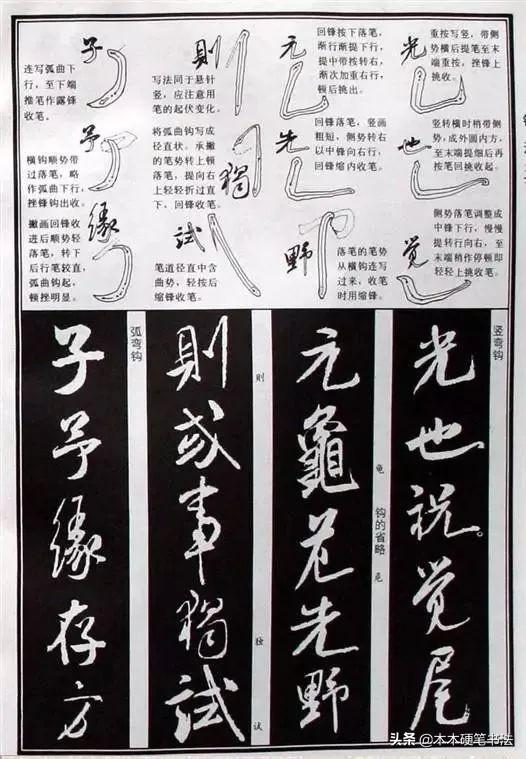 光
重按写竖,带侧
势横后提笔至末
端重按,挫锋上
挑收。
也
竖转横时稍带侧
势,成外圆内方,
至末端提细后再
按笔回挑收起。
觉
侧势落笔调整成
中锋下行,慢慢
提转行向右,至
末端稍作停顿即
轻轻上挑收笔。
元
回锋按下落笔,
渐行渐提下行,
提中带按转右,
渐次加重右行,
顿后挑出。
先
回锋落笔,竖画
粗短,侧势转右
以中锋向右行,
回锋缩内收笔。
野
落笔的笔势
从横钩连写
过来,收笔
时用缩锋。
則
写法同于悬针
竖,应注意用
笔的起伏变化。
獨
将弧曲钩写成
径直状。承撇
的笔势转上顿
落笔,提向右
上轻轻折过直
下,回锋收笔。
試
笔道径直中含
曲势,轻按后
缩锋收笔。
子
连写弧曲下
行,至下端
推笔作露锋
收笔。
予
横钩顺势带
过落笔,略
作弧曲下行,
挫锋钩出收。
緣
撇画回锋收
进后顺势轻
落笔,转下
后行笔较直,
弧曲钩起,
顿挫明显。
竖弯钩
光也説。觉尾
钩的省略
龟
元龜先野
则
独
试
則或事獨試
弧弯钩
子予緣存方
头条 @木木硬笔书法